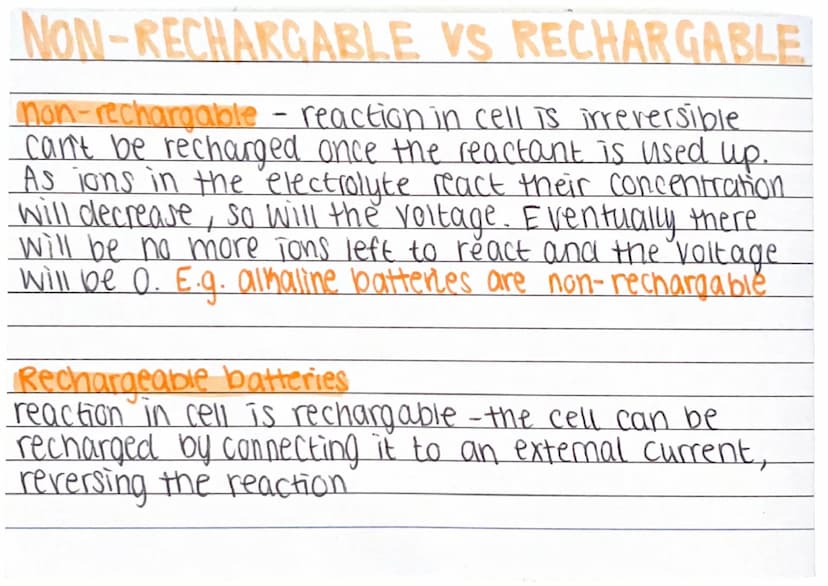 NON-RECHARGABLE VS RECHARGABLE
non-rechargable - reaction in cell is irreversible
can't be recharged once the reactant is used up.
As ions in the electrolyte react their concentration
will decrease, so will the voltage. Eventually there
will be no more ions left to react and the voltage
will be 0. E.g. alkaline batteries are non-rechargable
Rechargeable batteries
reaction in cell is rechargable - the cell can be
recharged by connecting it to an external current,
reversing the reaction